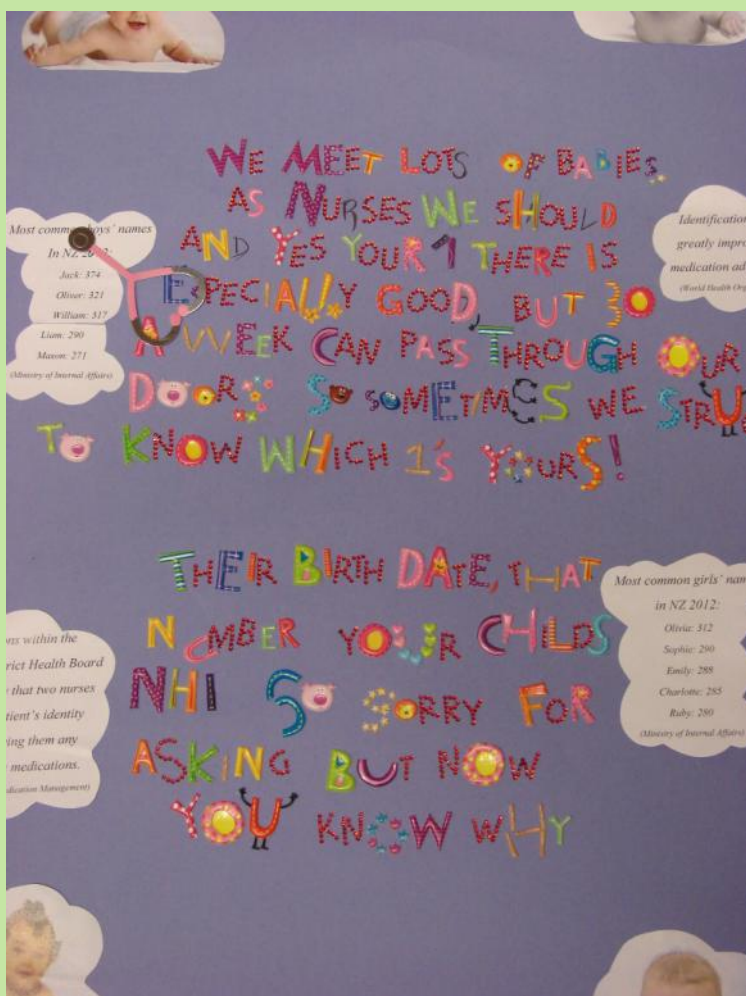 WE MEET LOTS OF BABIES,
AS NURSES WE SHOULD
AND YES YOUR 1 THERE IS
ESPECIALLY GOOD, BUT 30
A WEEK CAN PASS THROUGH OUR
DOORS SO SOMETIMES WE STRU
TO KNOW WHICH 1'S YOURS!
THEIR BIRTH DATE, THAT
NUMBER YOUR CHILDS
NHI SO SORRY FOR
ASKING BUT NOW
YOU KNOW WHY
Most common boys' names
In NZ 2012:
Jack: 374
Oliver: 321
William: 317
Liam: 290
Mason: 271
(Ministry of Internal Affairs)
Identification
greatly impro
medication ad
(World Health Org
ons within the
rict Health Board
that two nurses
tient's identity
ing them any
medications.
dication Management)
Most common girls' nam
in NZ 2012:
Olivia: 312
Sophie: 290
Emily: 288
Charlotte: 285
Ruby: 280
(Ministry of Internal Affairs)